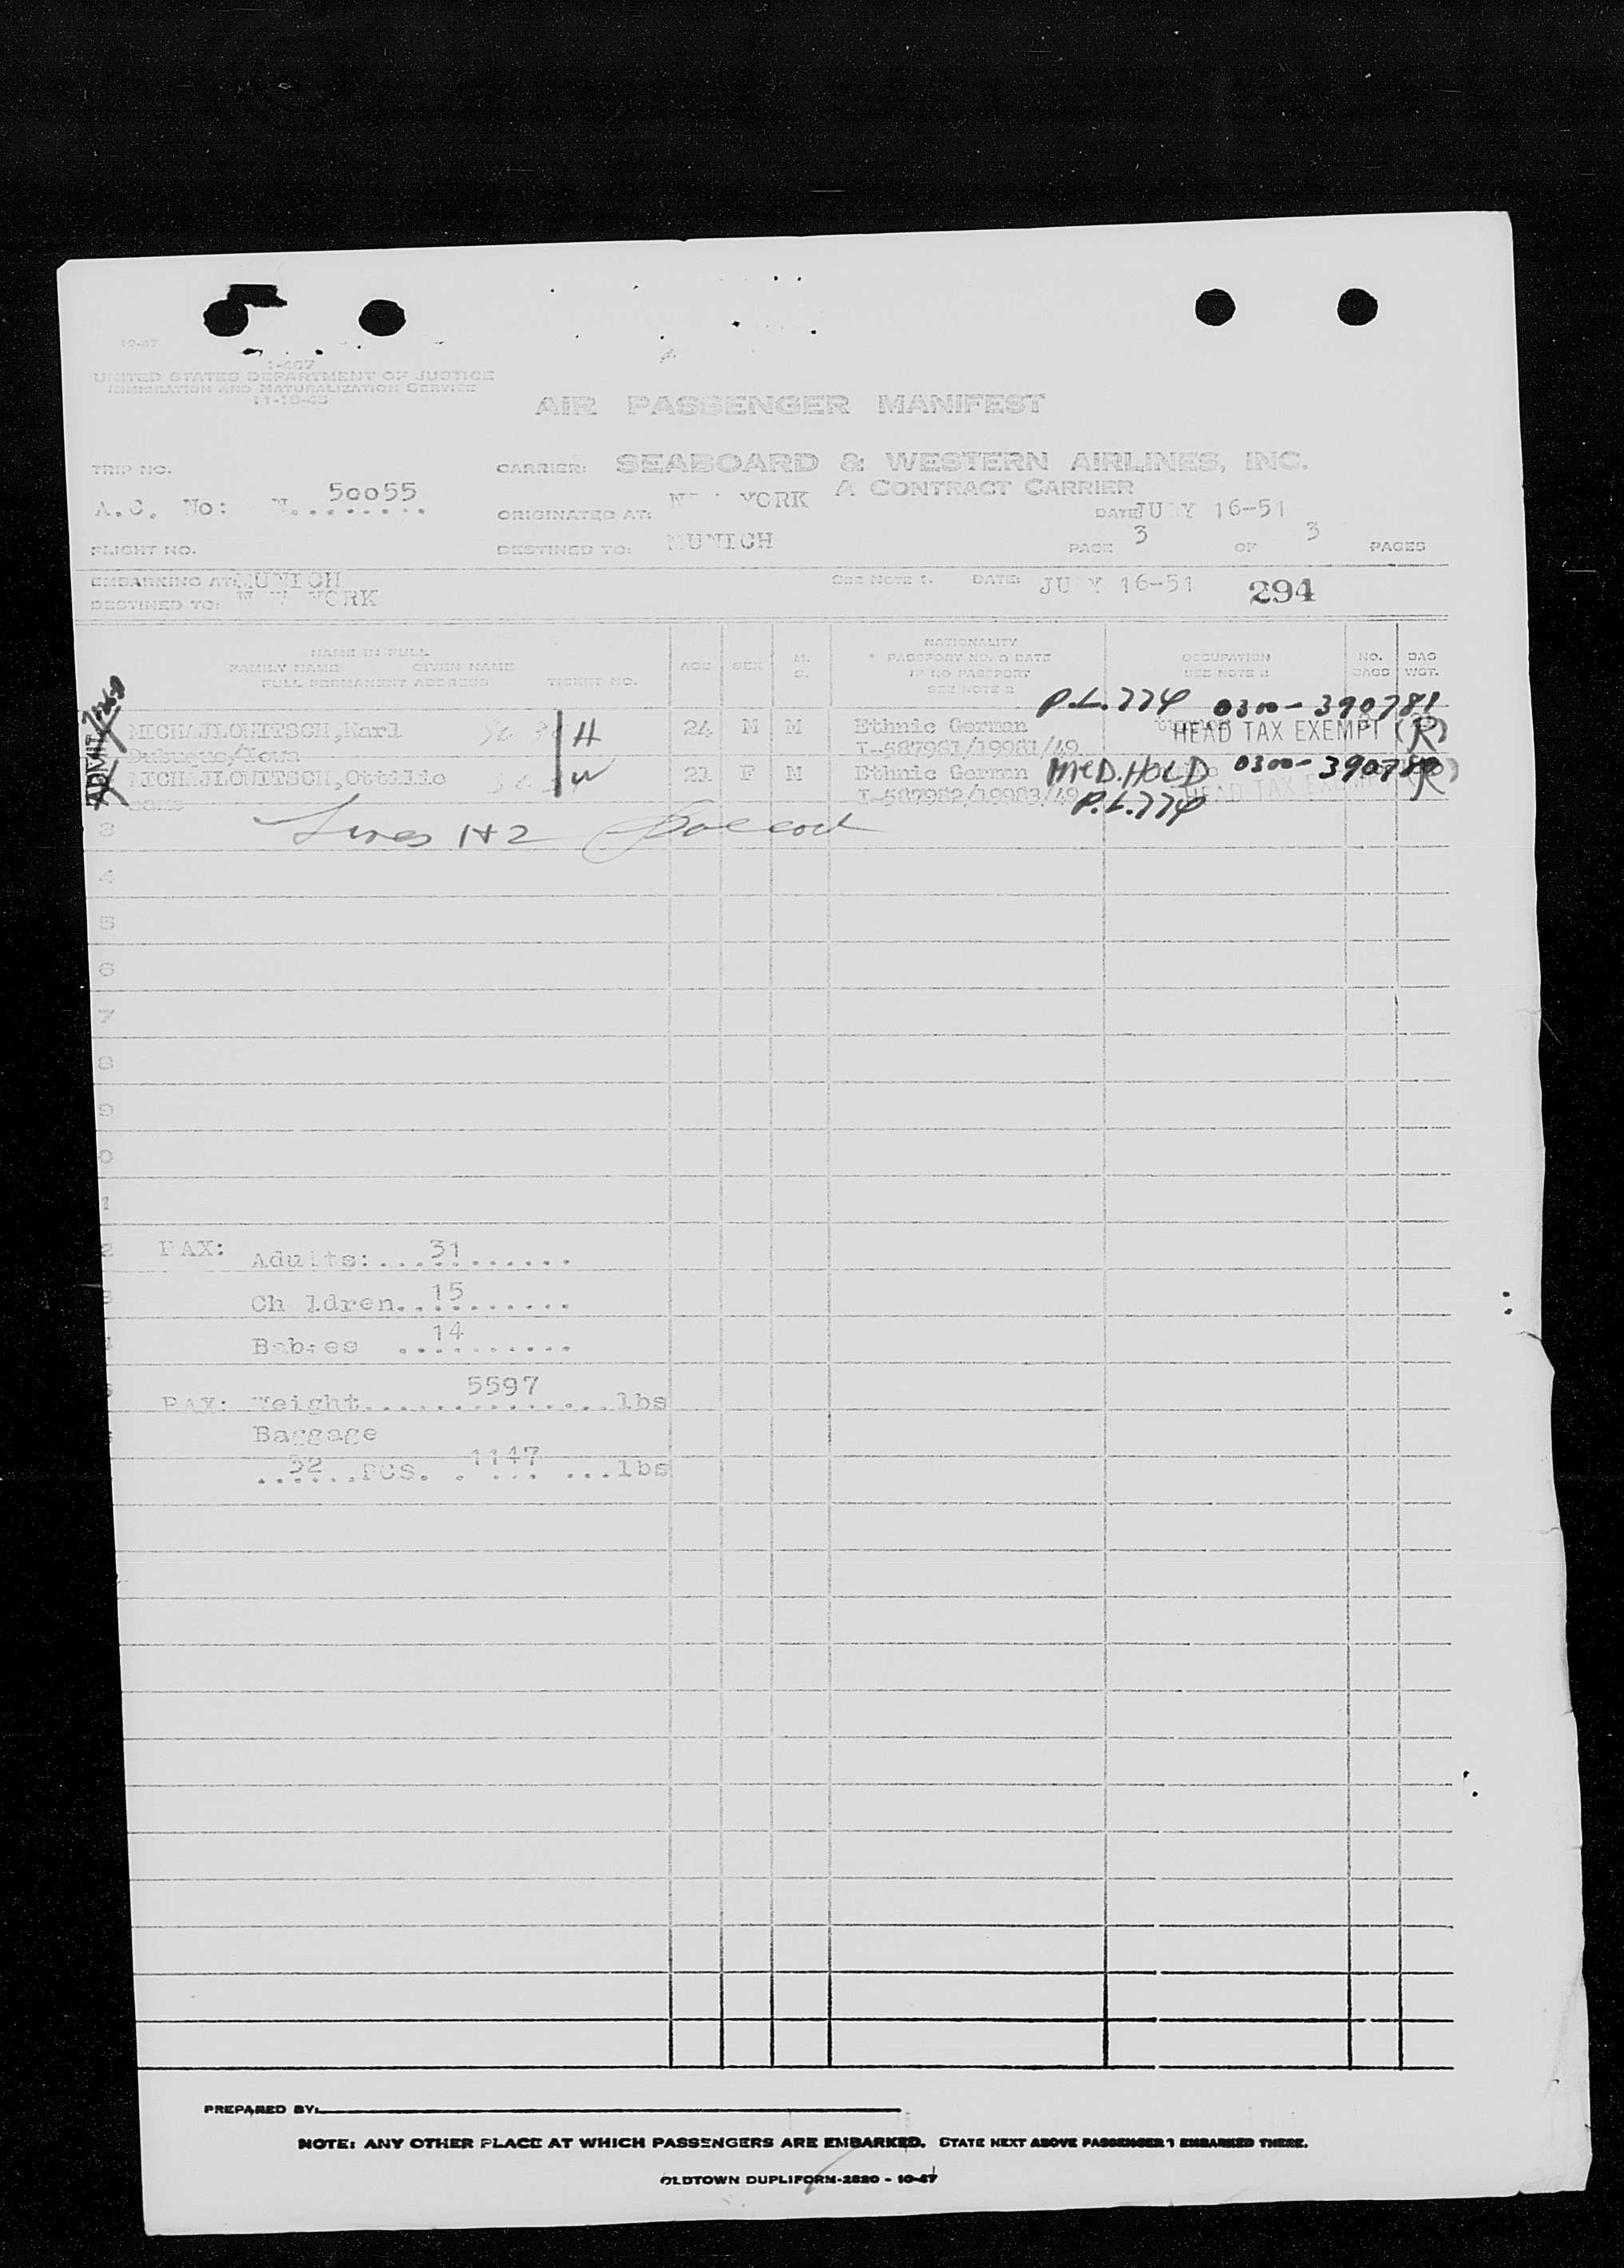 10-47
I-467
UNITED STATES DEPARTMENT OF JUSTICE
IMMIGRATION AND NATURALIZATION SERVICE
11-18-45
AIR PASSENGER MANIFEST
TRIP NO.
CARRIER: SEABOARD & WESTERN AIRLINES, INC.
A CONTRACT CARRIER
A.C. No: N. 50055
ORIGINATED AT: N YORK
DATE JU Y 16-51
FLIGHT NO.
DESTINED TO: MUNICH
PAGE 3 OF 3 PAGES
EMBARKING AT: MUNICH
SEE NOTE 1. DATE: JU Y 16-51 294
DESTINED TO: N W YORK
NAME IN FULL
FAMILY NAME GIVEN NAME
FULL PERMANENT ADDRESS TICKET NO.
AGE SEX M. S.
NATIONALITY
* PASSPORT NO. & DATE
IF NO PASSPORT
SEE NOTE 2
OCCUPATION
SEE NOTE 2
NO. BAGS
BAG WGT.
P.L.774 0300-390781
MICHAJLOWITSCH,Karl H 24 M M Ethnic German HEAD TAX EXEMPT (R)
Dubuque/Iowa I-587981/19981/49
MICHAJLOWITSCH,Ottilie W 21 F M Ethnic German MED. HOLD 0300-390780 (R)
same I-587982/19983/49 P.L.774 HEAD TAX EXEMPT
3 Lines 1+2
4
5
6
7
8
9
0
1
2 PAX: Adults:....31.........
Ch ldren..15.........
Babies ...14......
PAX: Weight.......5597.......lbs
Baggage
..32....PCS. . 1147 ...lbs
PREPARED BY:
NOTE: ANY OTHER PLACE AT WHICH PASSENGERS ARE EMBARKED. STATE NEXT ABOVE PASSENGER 1 EMBARKED THERE.
OLDTOWN DUPLIFORM-2820 - 10-47